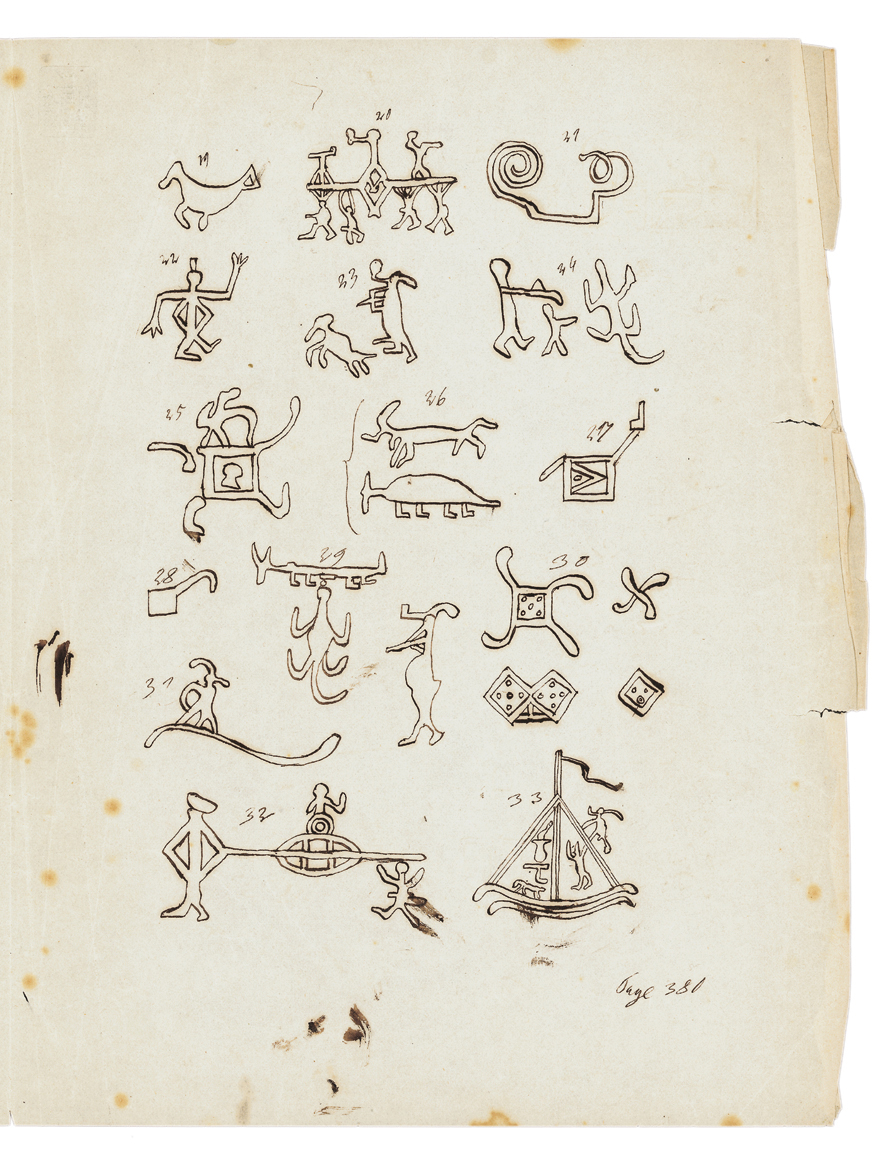 19
20
21
22
23
24
25
26
27
28
29
30
31
32
33
Page 380